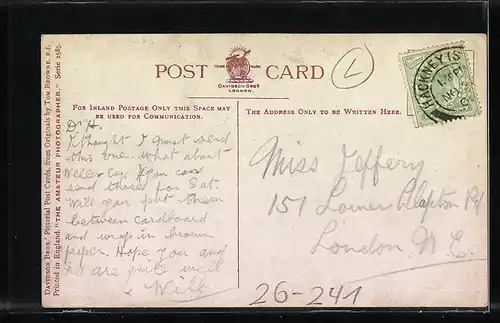 POST CARD
TRADE MARK
DAVIDSON BROS
LONDON.
FOR INLAND POSTAGE ONLY THIS SPACE MAY
BE USED FOR COMMUNICATION.
THE ADDRESS ONLY TO BE WRITTEN HERE.
DAVIDSON BROS.' Pictorial Post Cards, from Originals by TOM BROWNE, R.I.
Printed in England. "THE AMATEUR PHOTOGRAPHER." Serie 2585.
L
HACKNEY
NO
D. H.
I thought I must send
this one. what about
Weller Esq. If you can
send those for Sat.
Will you put them
between cardboard
and wrap in brown
paper. Hope you and
are quite well
x Will
Miss Jeffery
151 Lower Clapton Rd
London. N.E.
26-241